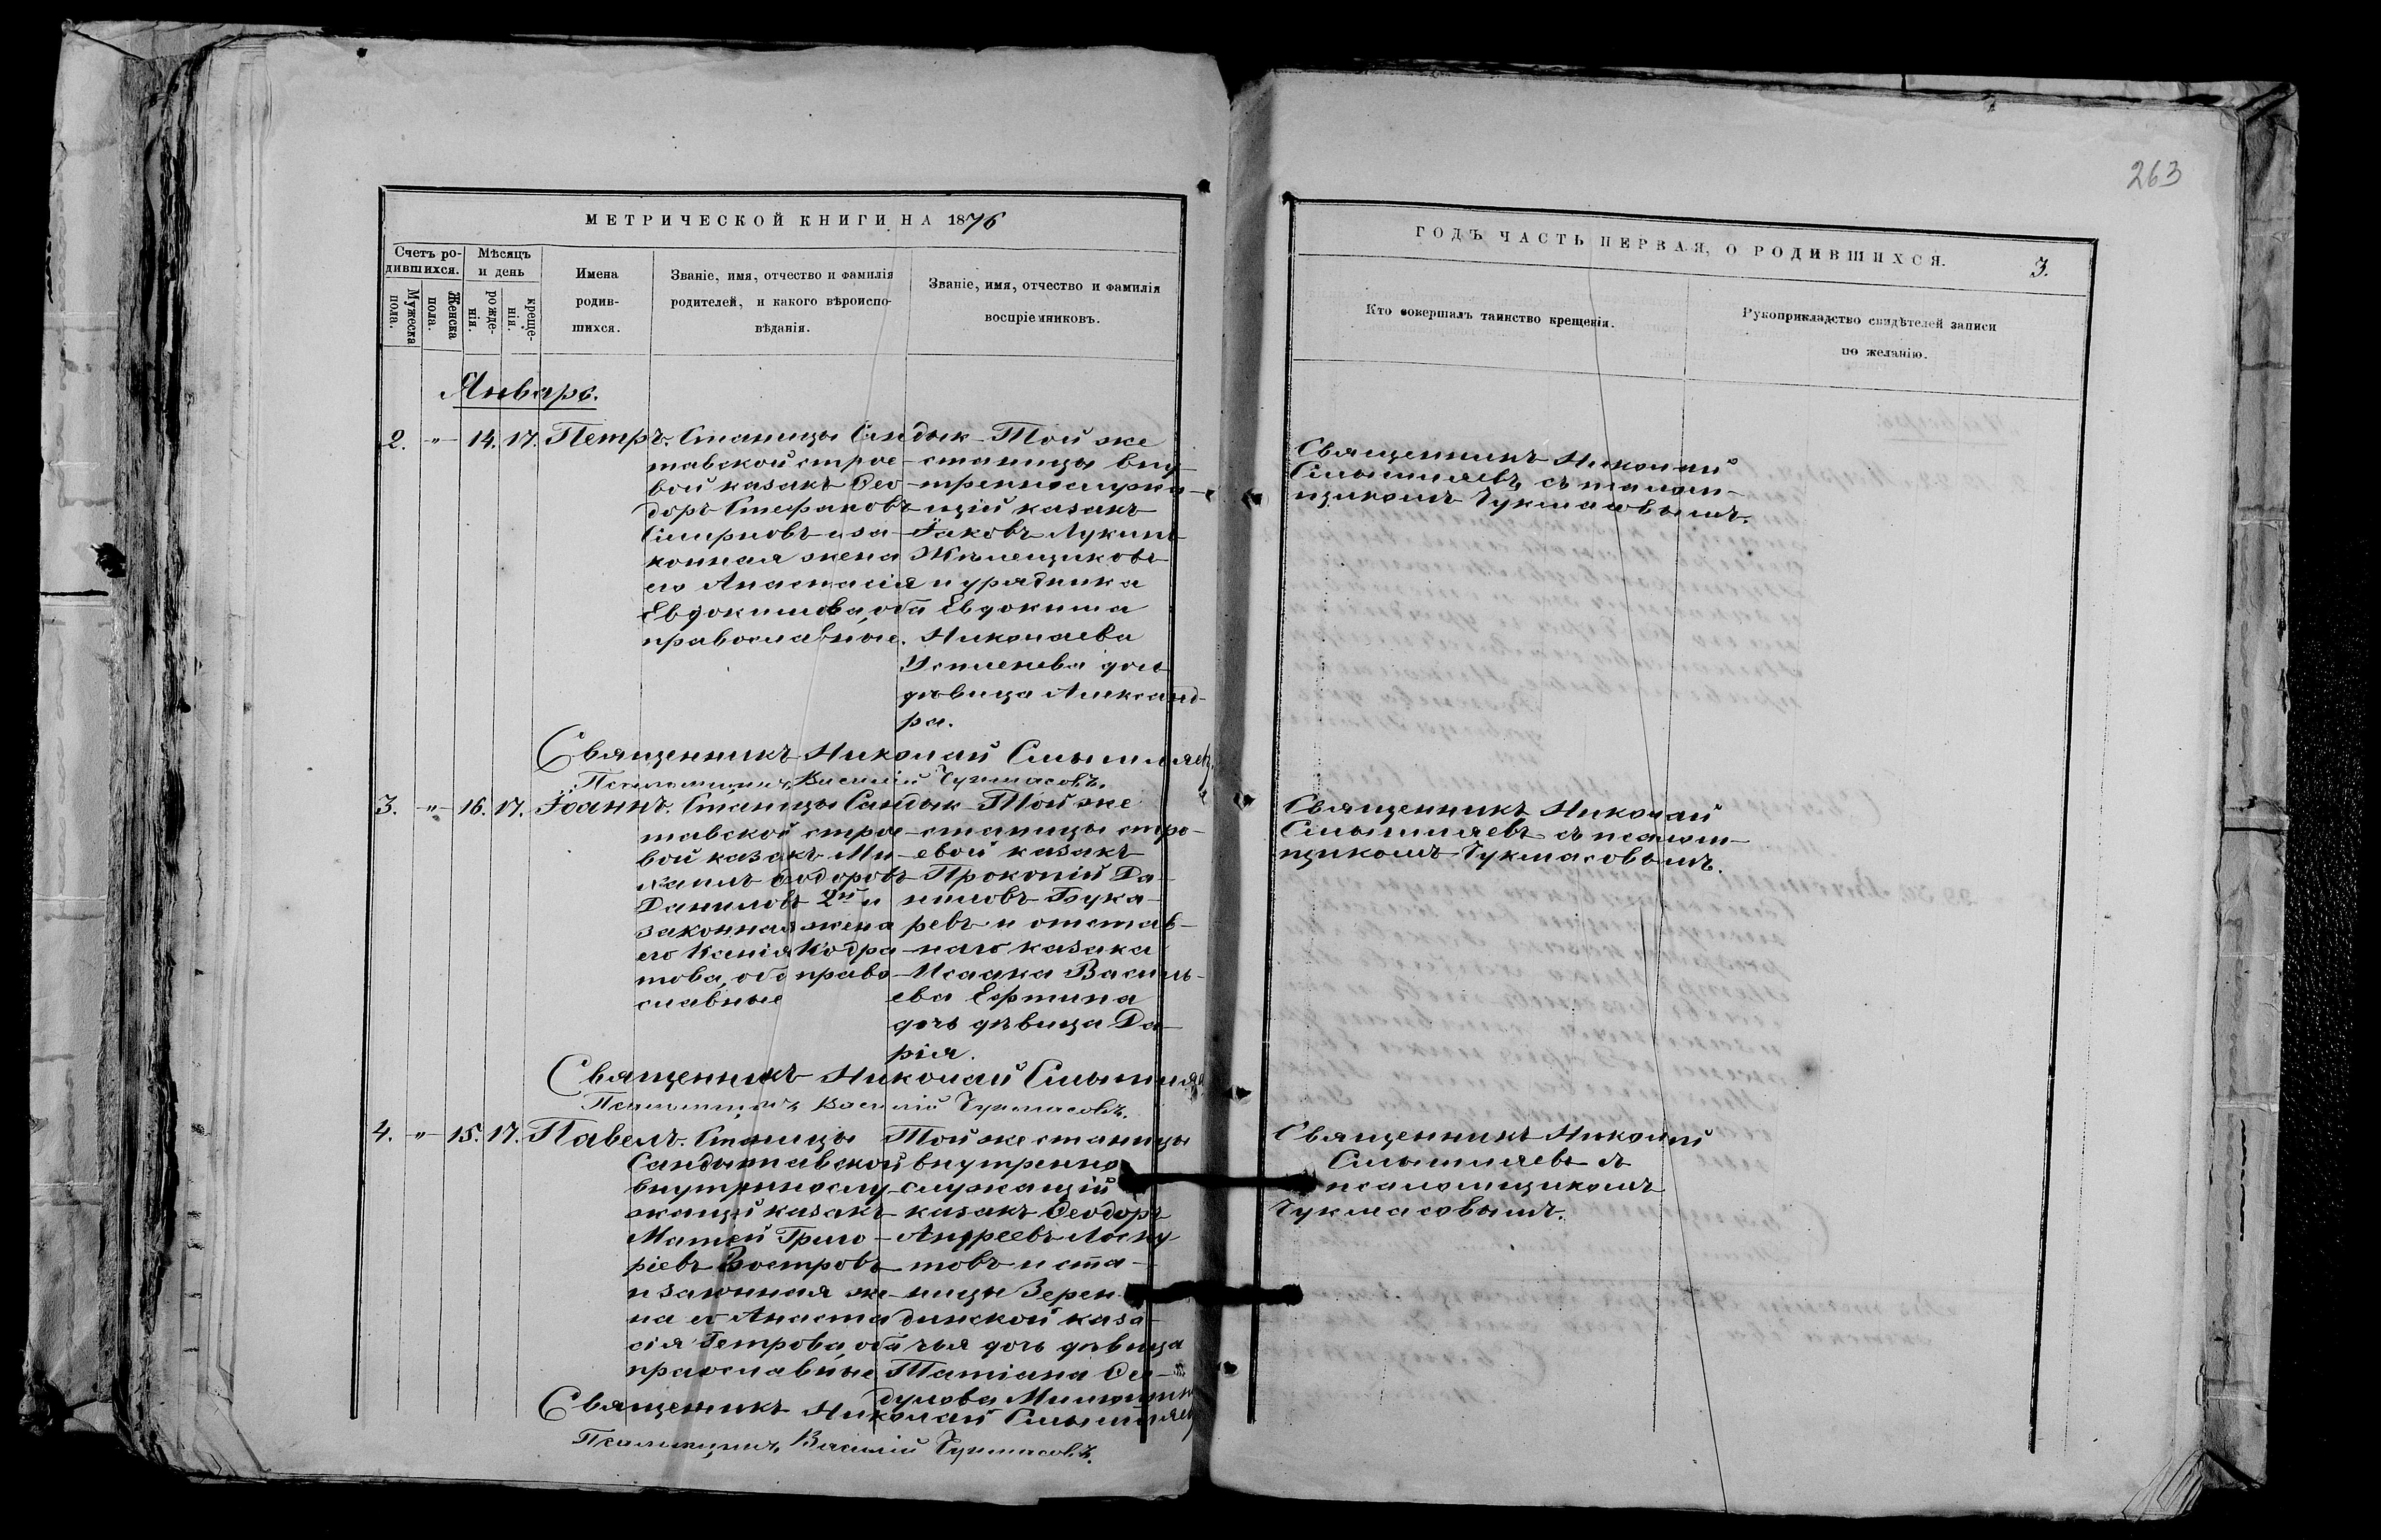 263
МЕТРИЧЕСКОЙ КНИГИ НА 1876
Счетъ ро-
дившихся.
Мужеска
пола.
Женска
пола.
Мѣсяцъ
и день
рожде-
нія.
креще-
нія.
Имена
родив-
шихся.
Званіе, имя, отчество и фамилія
родителей, и какого вѣроиспо-
вѣданія.
Званіе, имя, отчество и фамилія
воспріемниковъ.
ГОДЪ ЧАСТЬ ПЕРВАЯ, О РОДИВШИХСЯ.
3.
Кто совершалъ таинство крещенія.
Рукоприкладство свидѣтелей записи
по желанію.
Январь.
2. " 14. 17. Петръ.
Станицы Сандык-
тавской строе-
вой казакъ Ѳео-
доръ Стефановъ
Смирновъ и за-
конная жена
его Анастасія
Евдокимова, оба
православные.
Той же
станицы вну-
треннослужа-
щій казакъ
Іаковъ Лукинъ
и урядника
Евдокима
Николаева
дочь
дѣвица Александ-
ра.
Священникъ Николай
Псаломщикъ Василій Чукмасовъ.
Священникъ Николай
съ псалом-
щикомъ Чукмасовымъ.
3. " 16. 17. Іоаннъ.
Станицы Сандык-
тавской строе-
вой казакъ Ми-
хаилъ Ѳеодоровъ
Даниловъ 2й и
законная жена
его Ксенія Кодра-
това, оба право-
славные
Той же
станицы стро-
евой казакъ
Прокопій Да-
ниловъ Бука-
ревъ и отстав-
наго казака
Исаака Василь-
ева
дочь дѣвица Да-
рія.
Священникъ Николай
Псаломщикъ Василій Чукмасовъ.
Священникъ Николай
съ псалом-
щикомъ Чукмасовымъ.
4. " 15. 17. Павелъ.
Станицы
Сандыктавской
внутреннослу-
жащій казакъ
Матѳей Григо-
ріевъ Востровъ
и законная же-
на его Анаста-
сія Петрова, оба
православные
Той же станицы
внутренно
служащій
казакъ Ѳеодоръ
Андреевъ Лоску-
товъ и ста-
ницы Зерен-
динской каза-
чья дочь дѣвица
Татіана
Священникъ Николай
Псаломщикъ Василій Чукмасовъ.
Священникъ Николай
съ
псаломщикомъ
Чукмасовымъ.